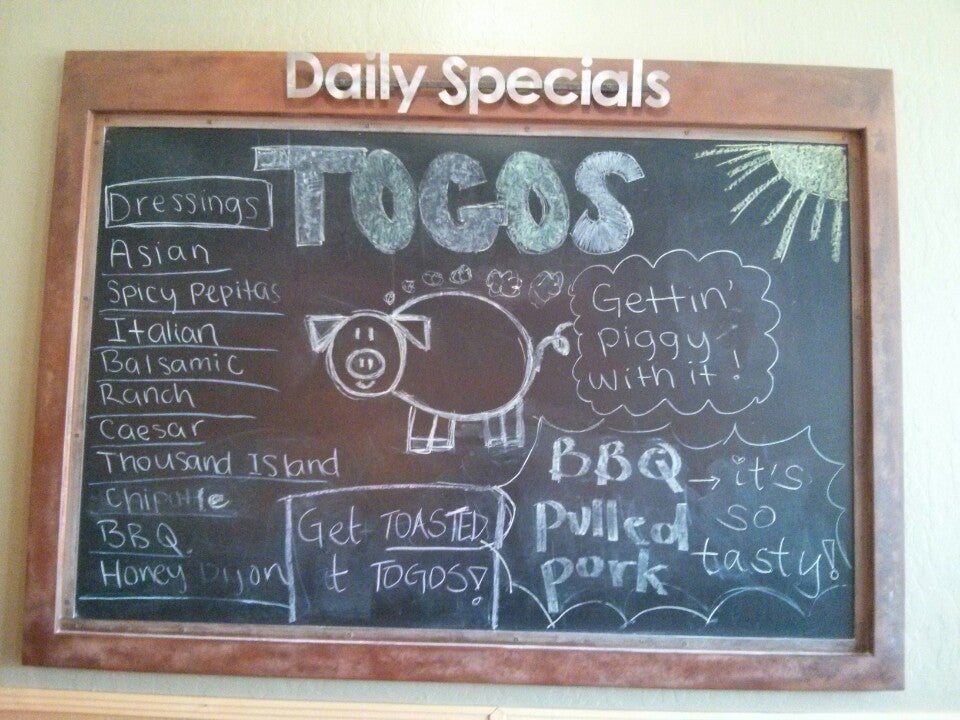 Daily Specials
TOGOS
Dressings
Asian
Spicy Pepitas
Italian
Balsamic
Ranch
Caesar
Thousand Island
Chipotle
BBQ
Honey Dijon
Gettin'
piggy
with it!
Get TOASTED
t TOGOS!
BBQ
pulled
pork
→ it's
so
tasty!